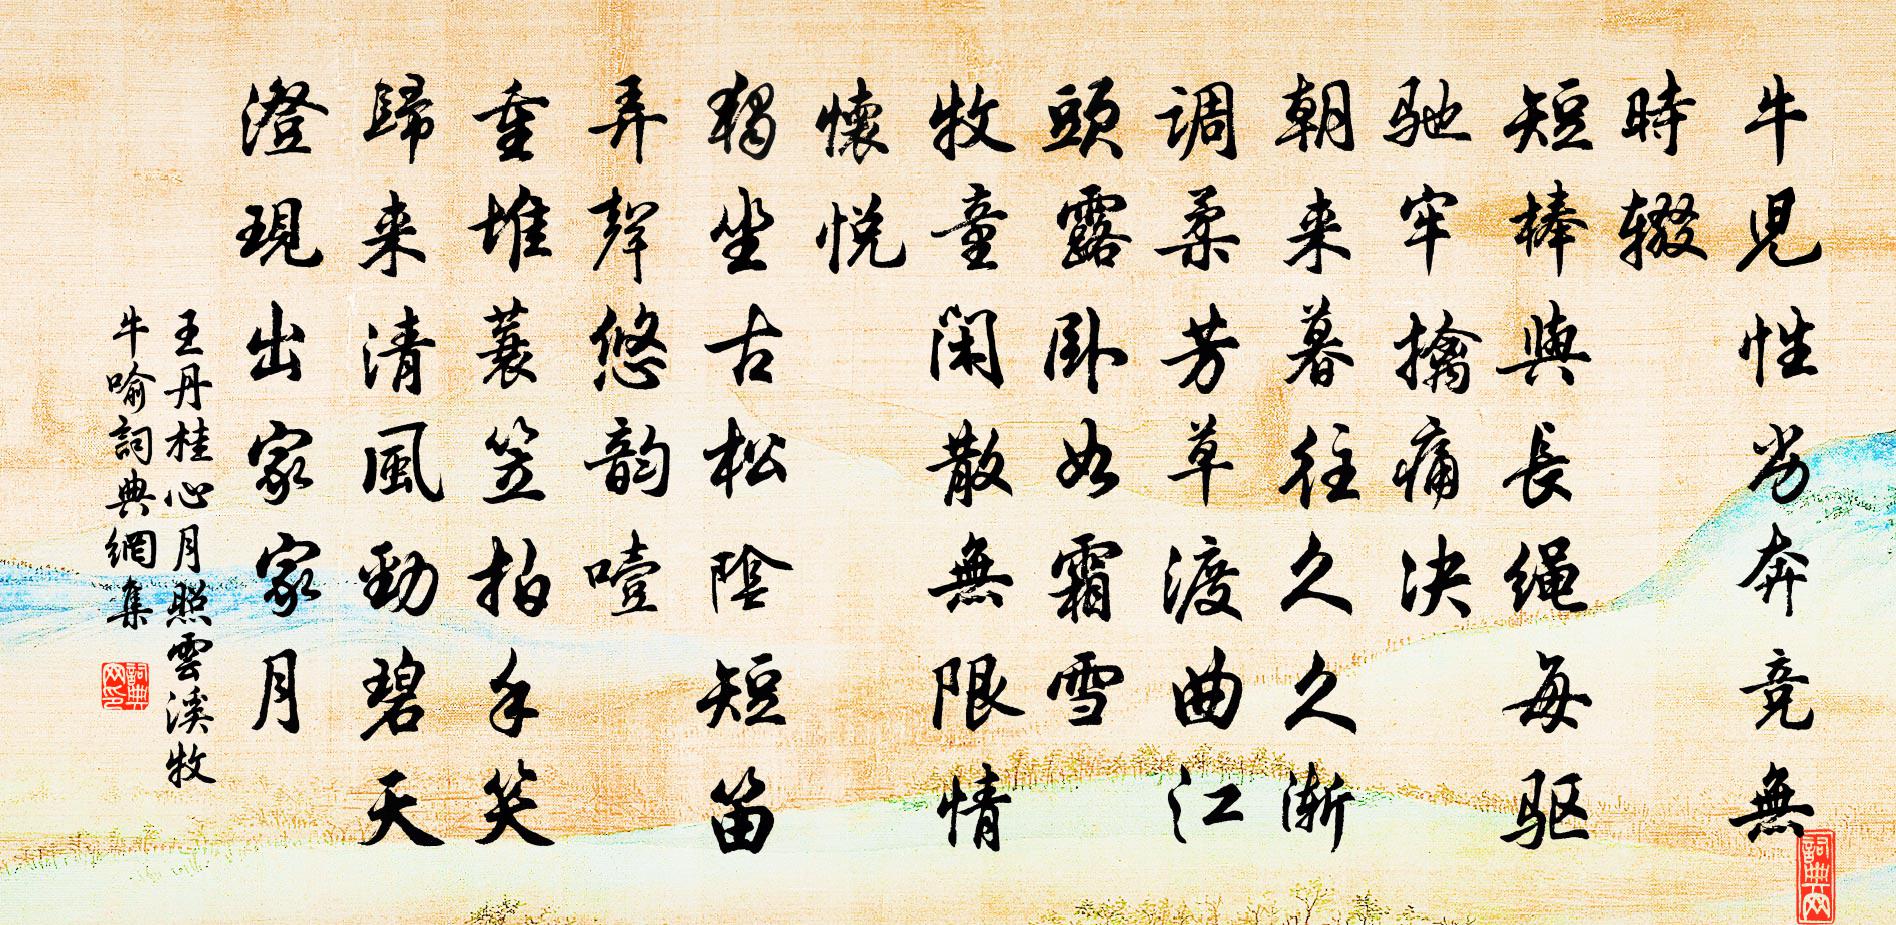 牛児性劣奔竞無
時辍
短棒與長绳每驱
驰牢擒痛决
朝来暮往久久渐
调柔芳草渡曲江
頭露卧如霜雪
牧童闲散無限情
懷悦
獨坐古松陰短笛
弄聲悠韵噎
重堆蓑笠拍手笑
歸来清風勁碧天
澄現出家家月
王丹桂心月照雲溪牧
牛喻詞典網集
詞典网
詞典网印